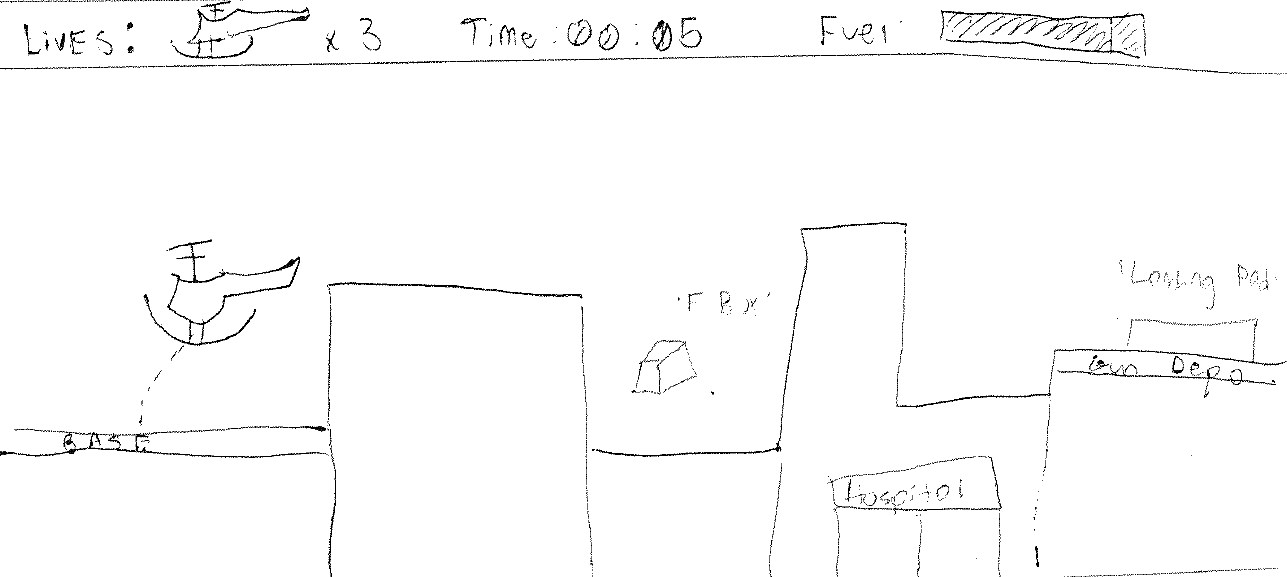 LiVES: x 3 Time:00:05 Fuel
'Landing Pad'
'F Box'
Depo
BASE
Hospital